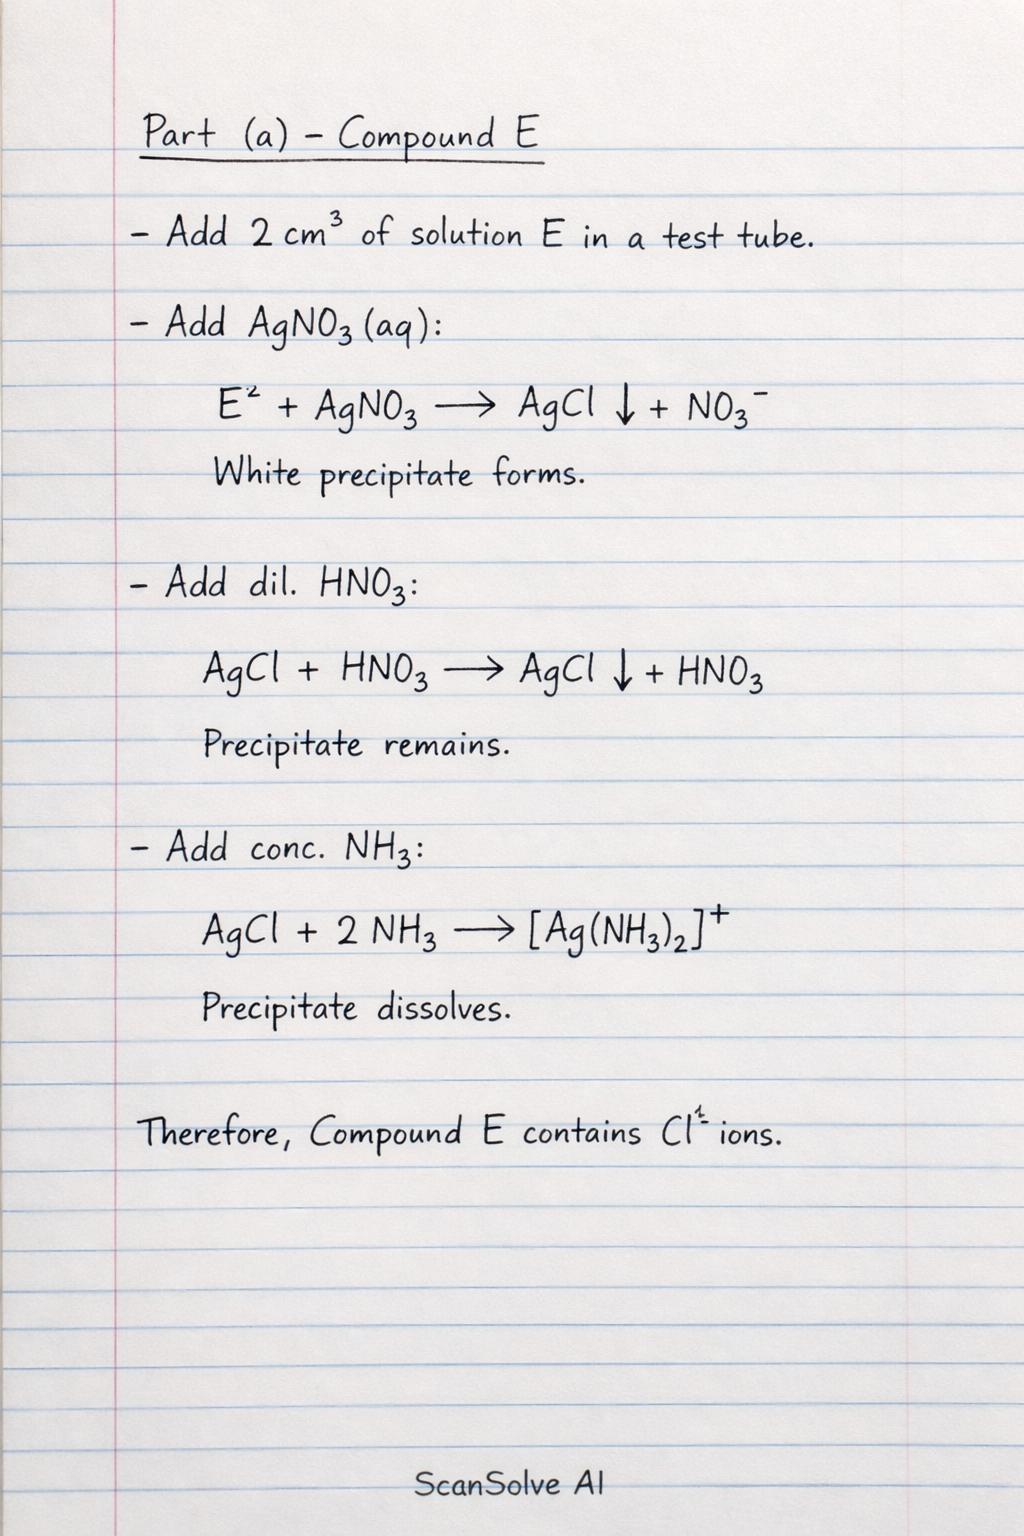 Part (a) – Compound E
– Add 2 cm³ of solution E in a test tube.
– Add AgNO₃ (aq):
E² + AgNO₃ ⟶ AgCl ↓ + NO₃⁻
White precipitate forms.
– Add dil. HNO₃:
AgCl + HNO₃ ⟶ AgCl ↓ + HNO₃
Precipitate remains.
– Add conc. NH₃:
AgCl + 2 NH₃ ⟶ [Ag(NH₃)₂]⁺
Precipitate dissolves.
Therefore, Compound E contains Cl⁻ ions.
ScanSolve AI